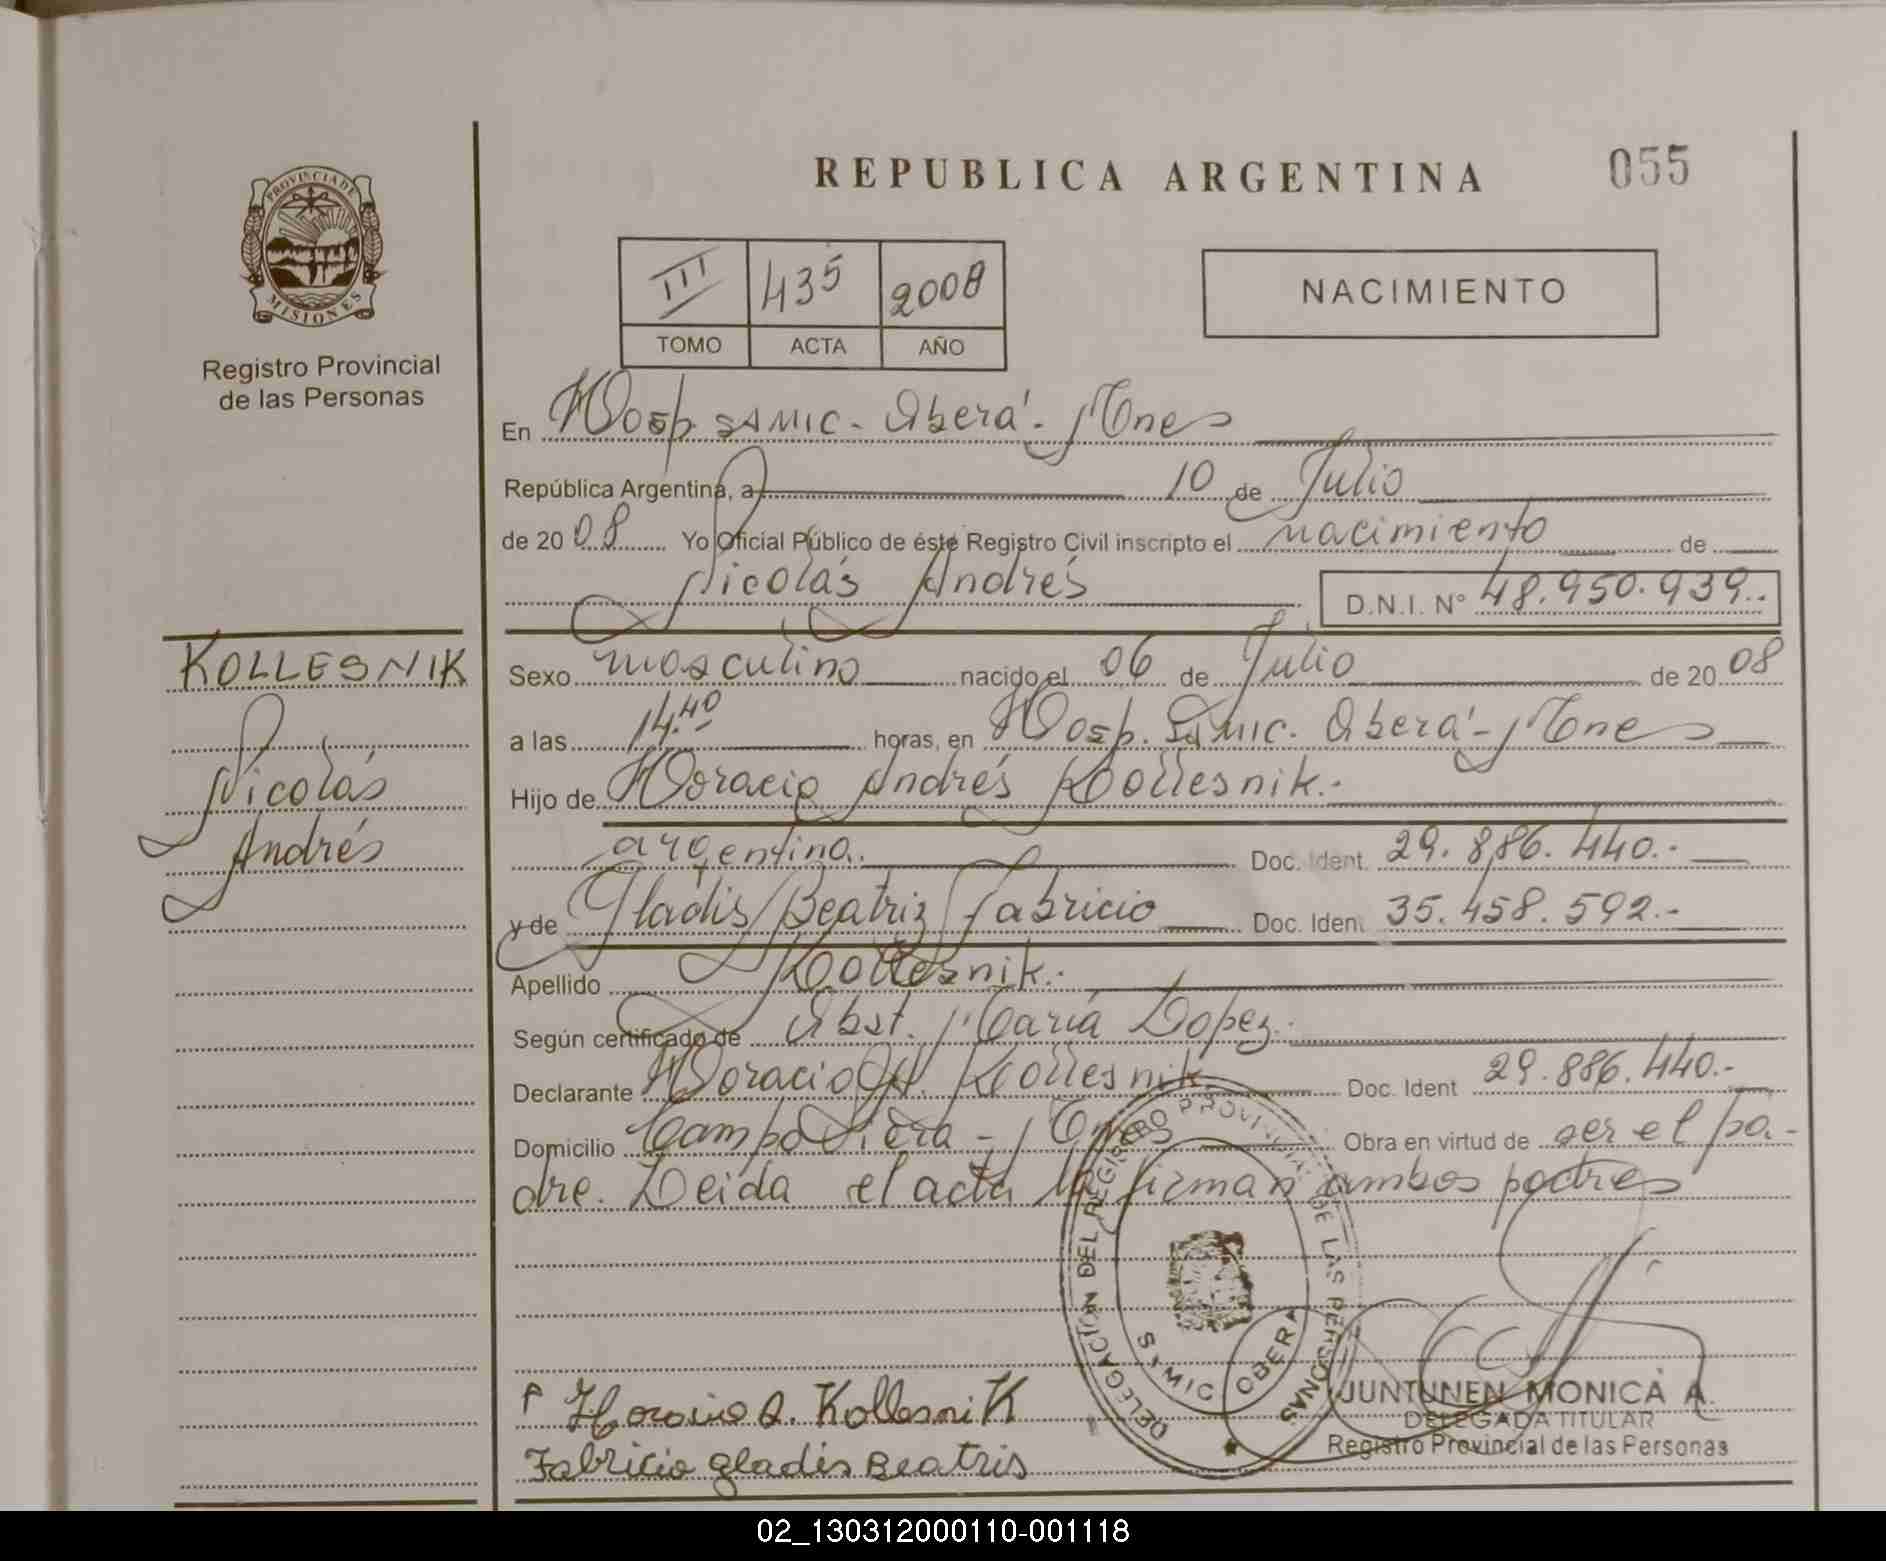 REPUBLICA ARGENTINA
055
PROVINCIA DE
MISIONES
Registro Provincial
de las Personas
III 435 2008
TOMO ACTA AÑO
NACIMIENTO
En Hosp. SAMIC. Oberá - Mnes
República Argentina, a 10 de Julio
de 20 08 Yo Oficial Público de éste Registro Civil inscripto el nacimiento de
Nicolás Andrés
D.N.I. Nº 48.950.939..
KOLLESNIK
Nicolás
Andrés
Sexo masculino nacido el 06 de Julio de 20 08
a las 14.40 horas, en Hosp. Samic. Oberá - Mnes
Hijo de Horacio Andrés Kollesnik.-
argentina. Doc. Ident. 29.886.440.-
y de Gladis Beatriz Fabricio Doc. Ident 35.458.592.-
Apellido Kollesnik.
Según certificado de Obst. María Lopez.
Declarante Horacio A. Kollesnik Doc. Ident 29.886.440.-
Domicilio Campo Viera - Mnes Obra en virtud de ser el pa-
dre. Leida el acta la firman ambos padres
DELEGACION DEL REGISTRO PROVINCIAL DE LAS PERSONAS
SAMIC OBERA
Horacio A. Kollesnik
Fabricio gladis Beatris
JUNTUNEN MONICA A.
DELEGADA TITULAR
Registro Provincial de las Personas
02_130312000110-001118